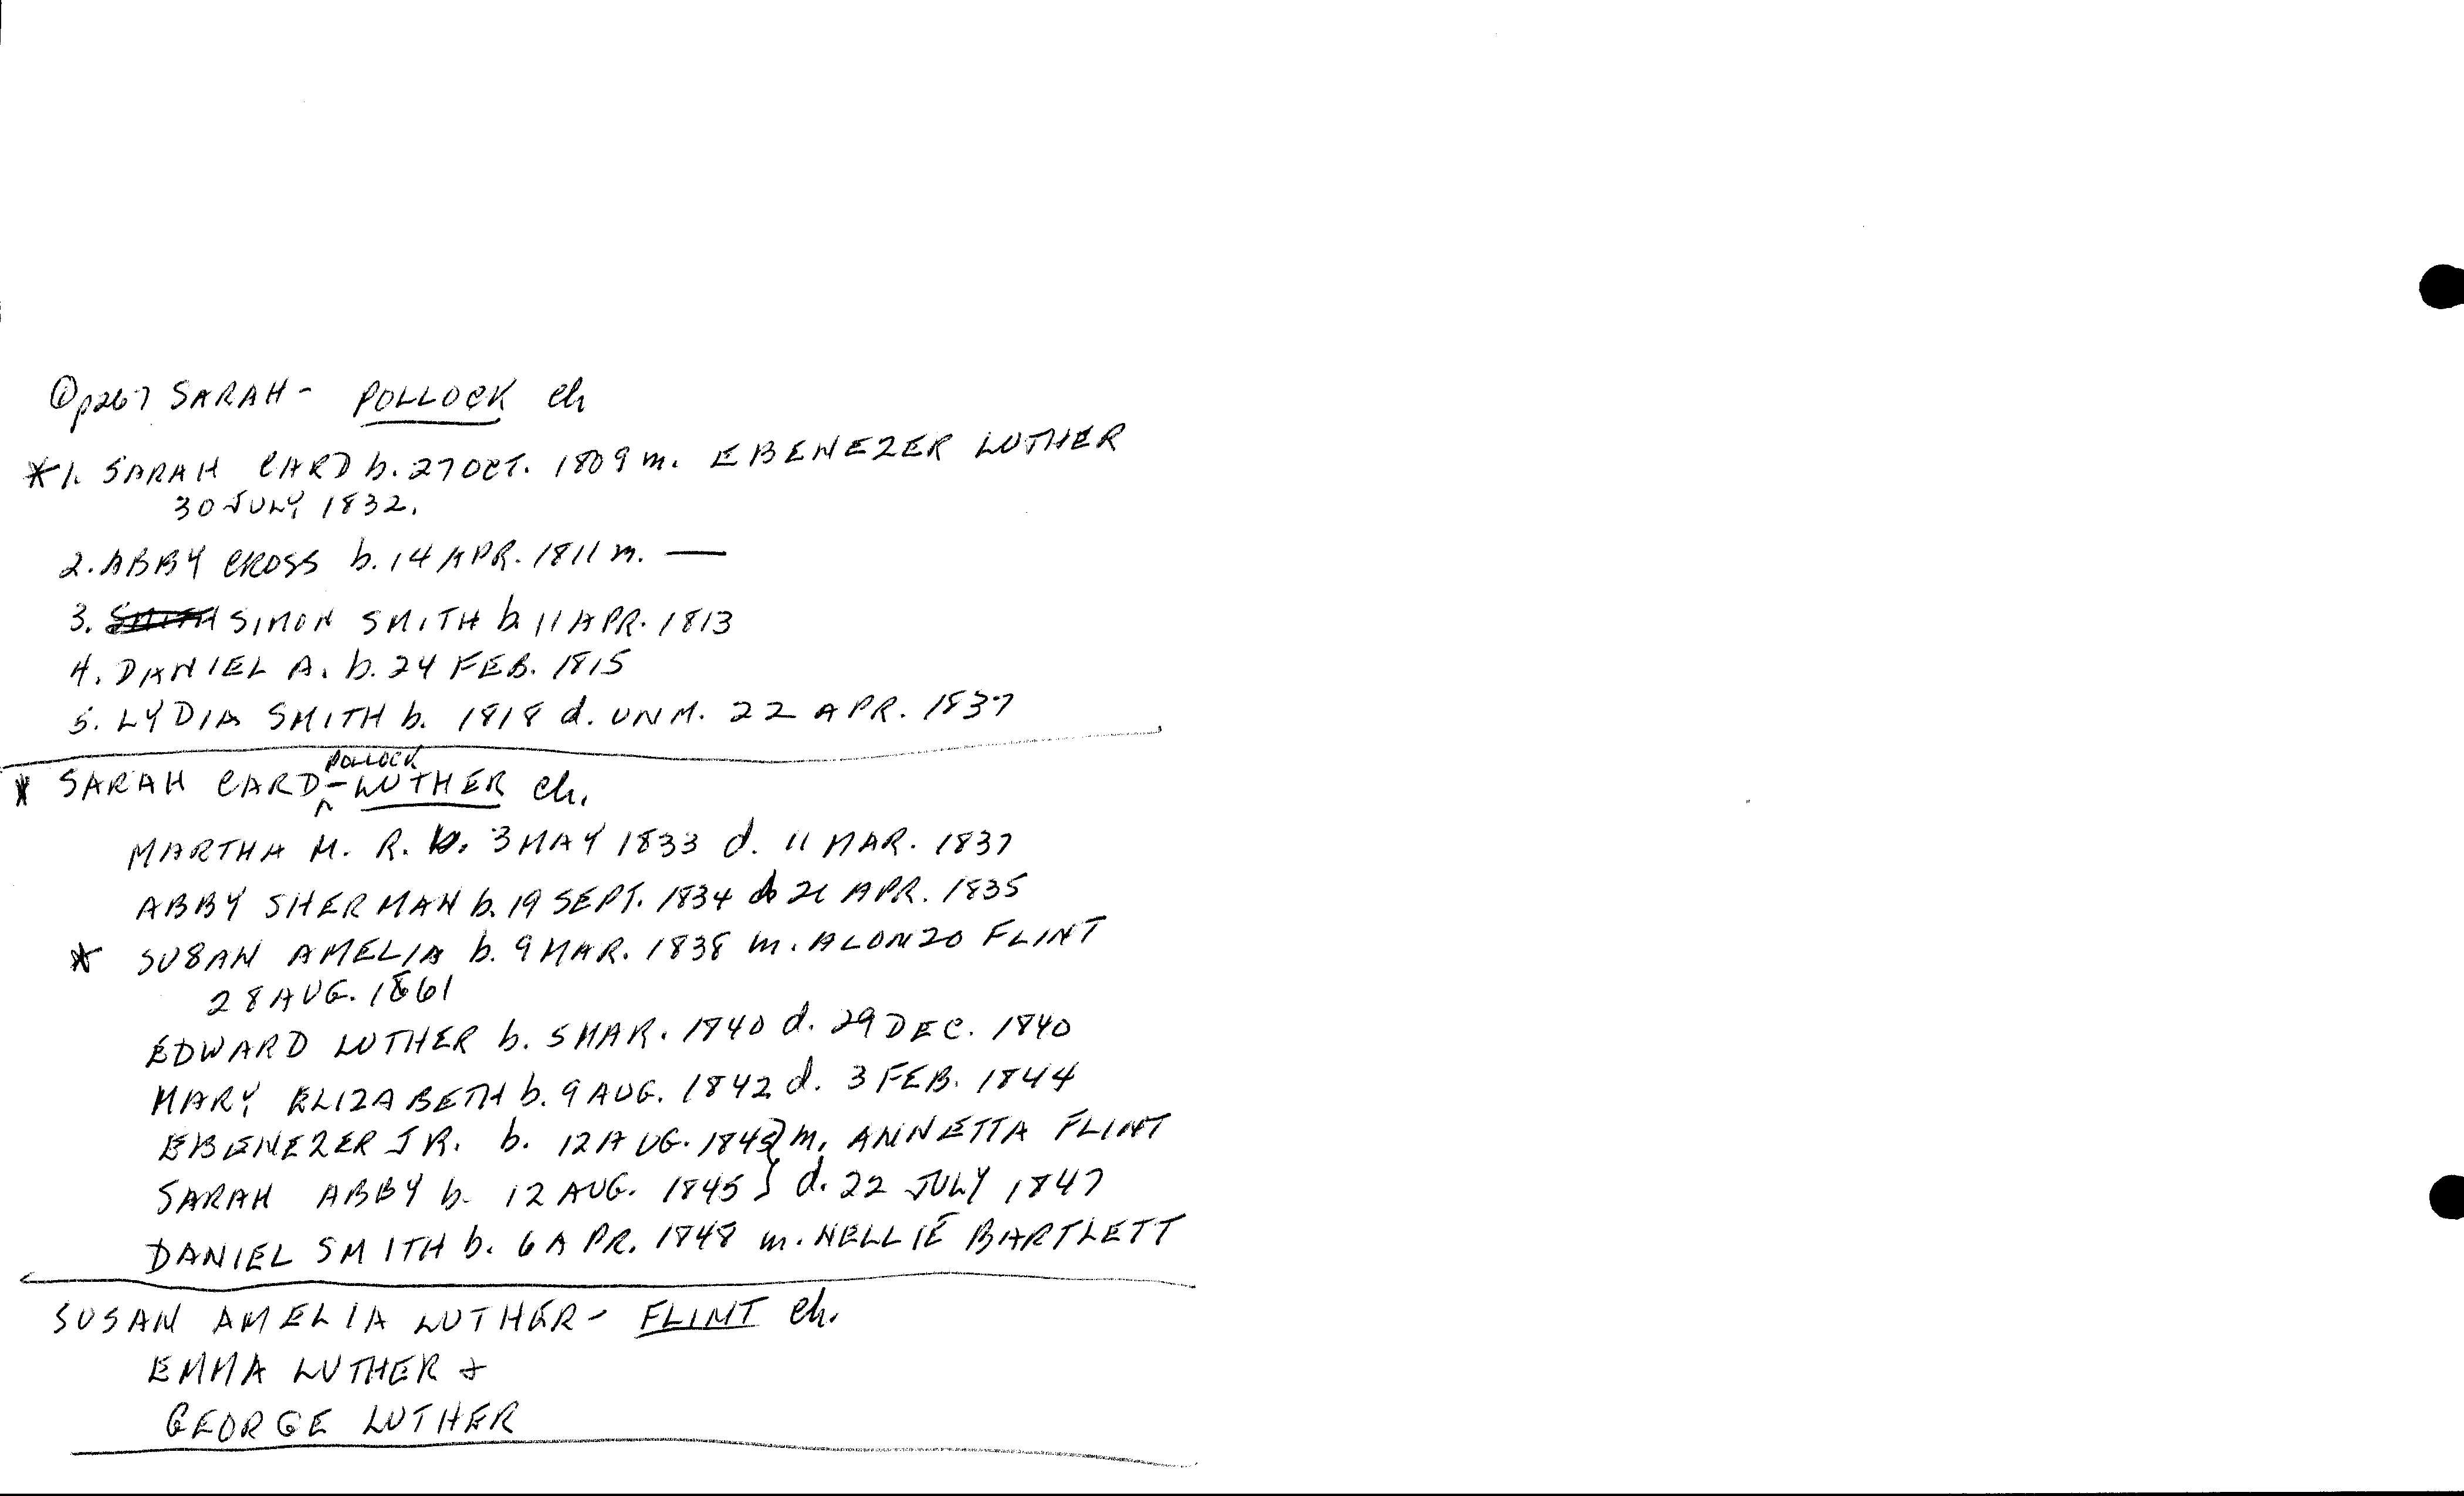 ① p267 SARAH - POLLOCK ch
* 1. SARAH CARD b. 27 OCT. 1809 m. EBENEZER LUTHER
30 JULY 1832.
2. ABBY CROSS b. 14 APR. 1811 m. —
3. SMITH SIMON SMITH b. 11 APR. 1813
4. DANIEL A. b. 24 FEB. 1815
5. LYDIA SMITH b. 1818 d. UNM. 22 APR. 1837
* SARAH CARD ^ POLLOCK - LUTHER ch.
MARTHA M. R. b. 3 MAY 1833 d. 11 MAR. 1837
ABBY SHERMAN b. 19 SEPT. 1834 d. APR. 1835
* SUSAN AMELIA b. 9 MAR. 1838 m. ALONZO FLINT
28 AUG. 1861
EDWARD LUTHER b. 5 MAR. 1840 d. 29 DEC. 1840
MARY ELIZABETH b. 9 AUG. 1842 d. 3 FEB. 1844
EBENEZER JR. b. 12 AUG. 1845 } m. ANNETTA FLINT
SARAH ABBY b. 12 AUG. 1845 } d. 22 JULY 1847
DANIEL SMITH b. 6 APR. 1848 m. NELLIE BARTLETT
SUSAN AMELIA LUTHER - FLINT ch.
EMMA LUTHER +
GEORGE LUTHER